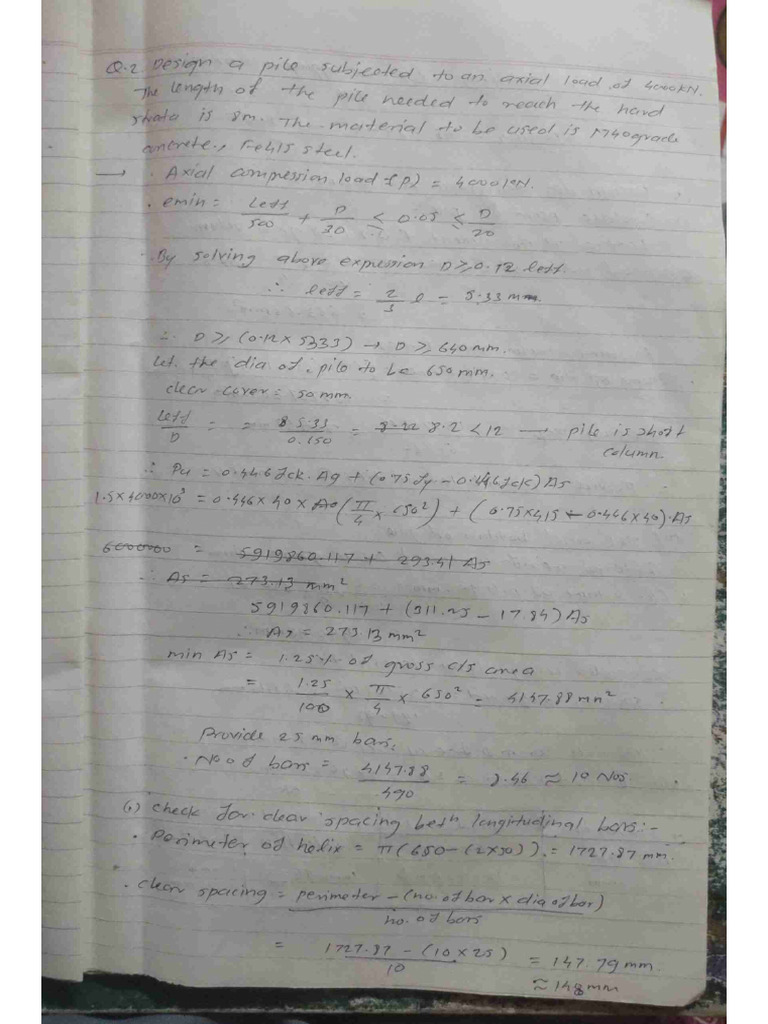 Q.2. Design a pile subjected to an axial load of 4000kN.
The length of the pile needed to reach the hard
strata is 8m. The material to be used is M40 grade
concrete, Fe415 steel.
→ . Axial compression load (P) = 4000 kN.
. emin = Leff/500 + D/30 ≤ 0.05 ≤ D/20
. By solving above expression D ≥ 0.12 leff.
∴ leff = 2/3 l = 5.33 mm.
∴ D ≥ (0.12 x 5333) → D ≥ 640 mm.
Let. the dia of. pile to be 650 mm.
clear cover = 50 mm.
Leff/D = = 5.33/0.650 = 8.2 < 12 → pile is short
column.
∴ Pu = 0.446 fck. Ag + (0.75 fy - 0.446 fck) As
1.5 x 4000 x 10³ = 0.446 x 40 x (π/4 x 650²) + (0.75 x 415 - 0.446 x 40). As
6000000 = 5919860.117 + 293.41 As
∴ As = 273.13 mm²
5919860.117 + (311.25 - 17.84) As
∴ As = 273.13 mm²
min As = 1.25 % of gross c/s area
= 1.25/100 x π/4 x 650² = 4147.88 mm²
Provide 25 mm bars.
. No of bars = 4147.88/490 = 8.46 ≈ 10 Nos.
(i) check for clear spacing betn longitudinal bars :-
. Perimeter of helix = π (650 - (2 x 50)). = 1727.87 mm.
. clear spacing = perimeter - (no. of bar x dia of bar)/no. of bars
= 1727.87 - (10 x 25)/10 = 147.79 mm.
≈ 148 mm